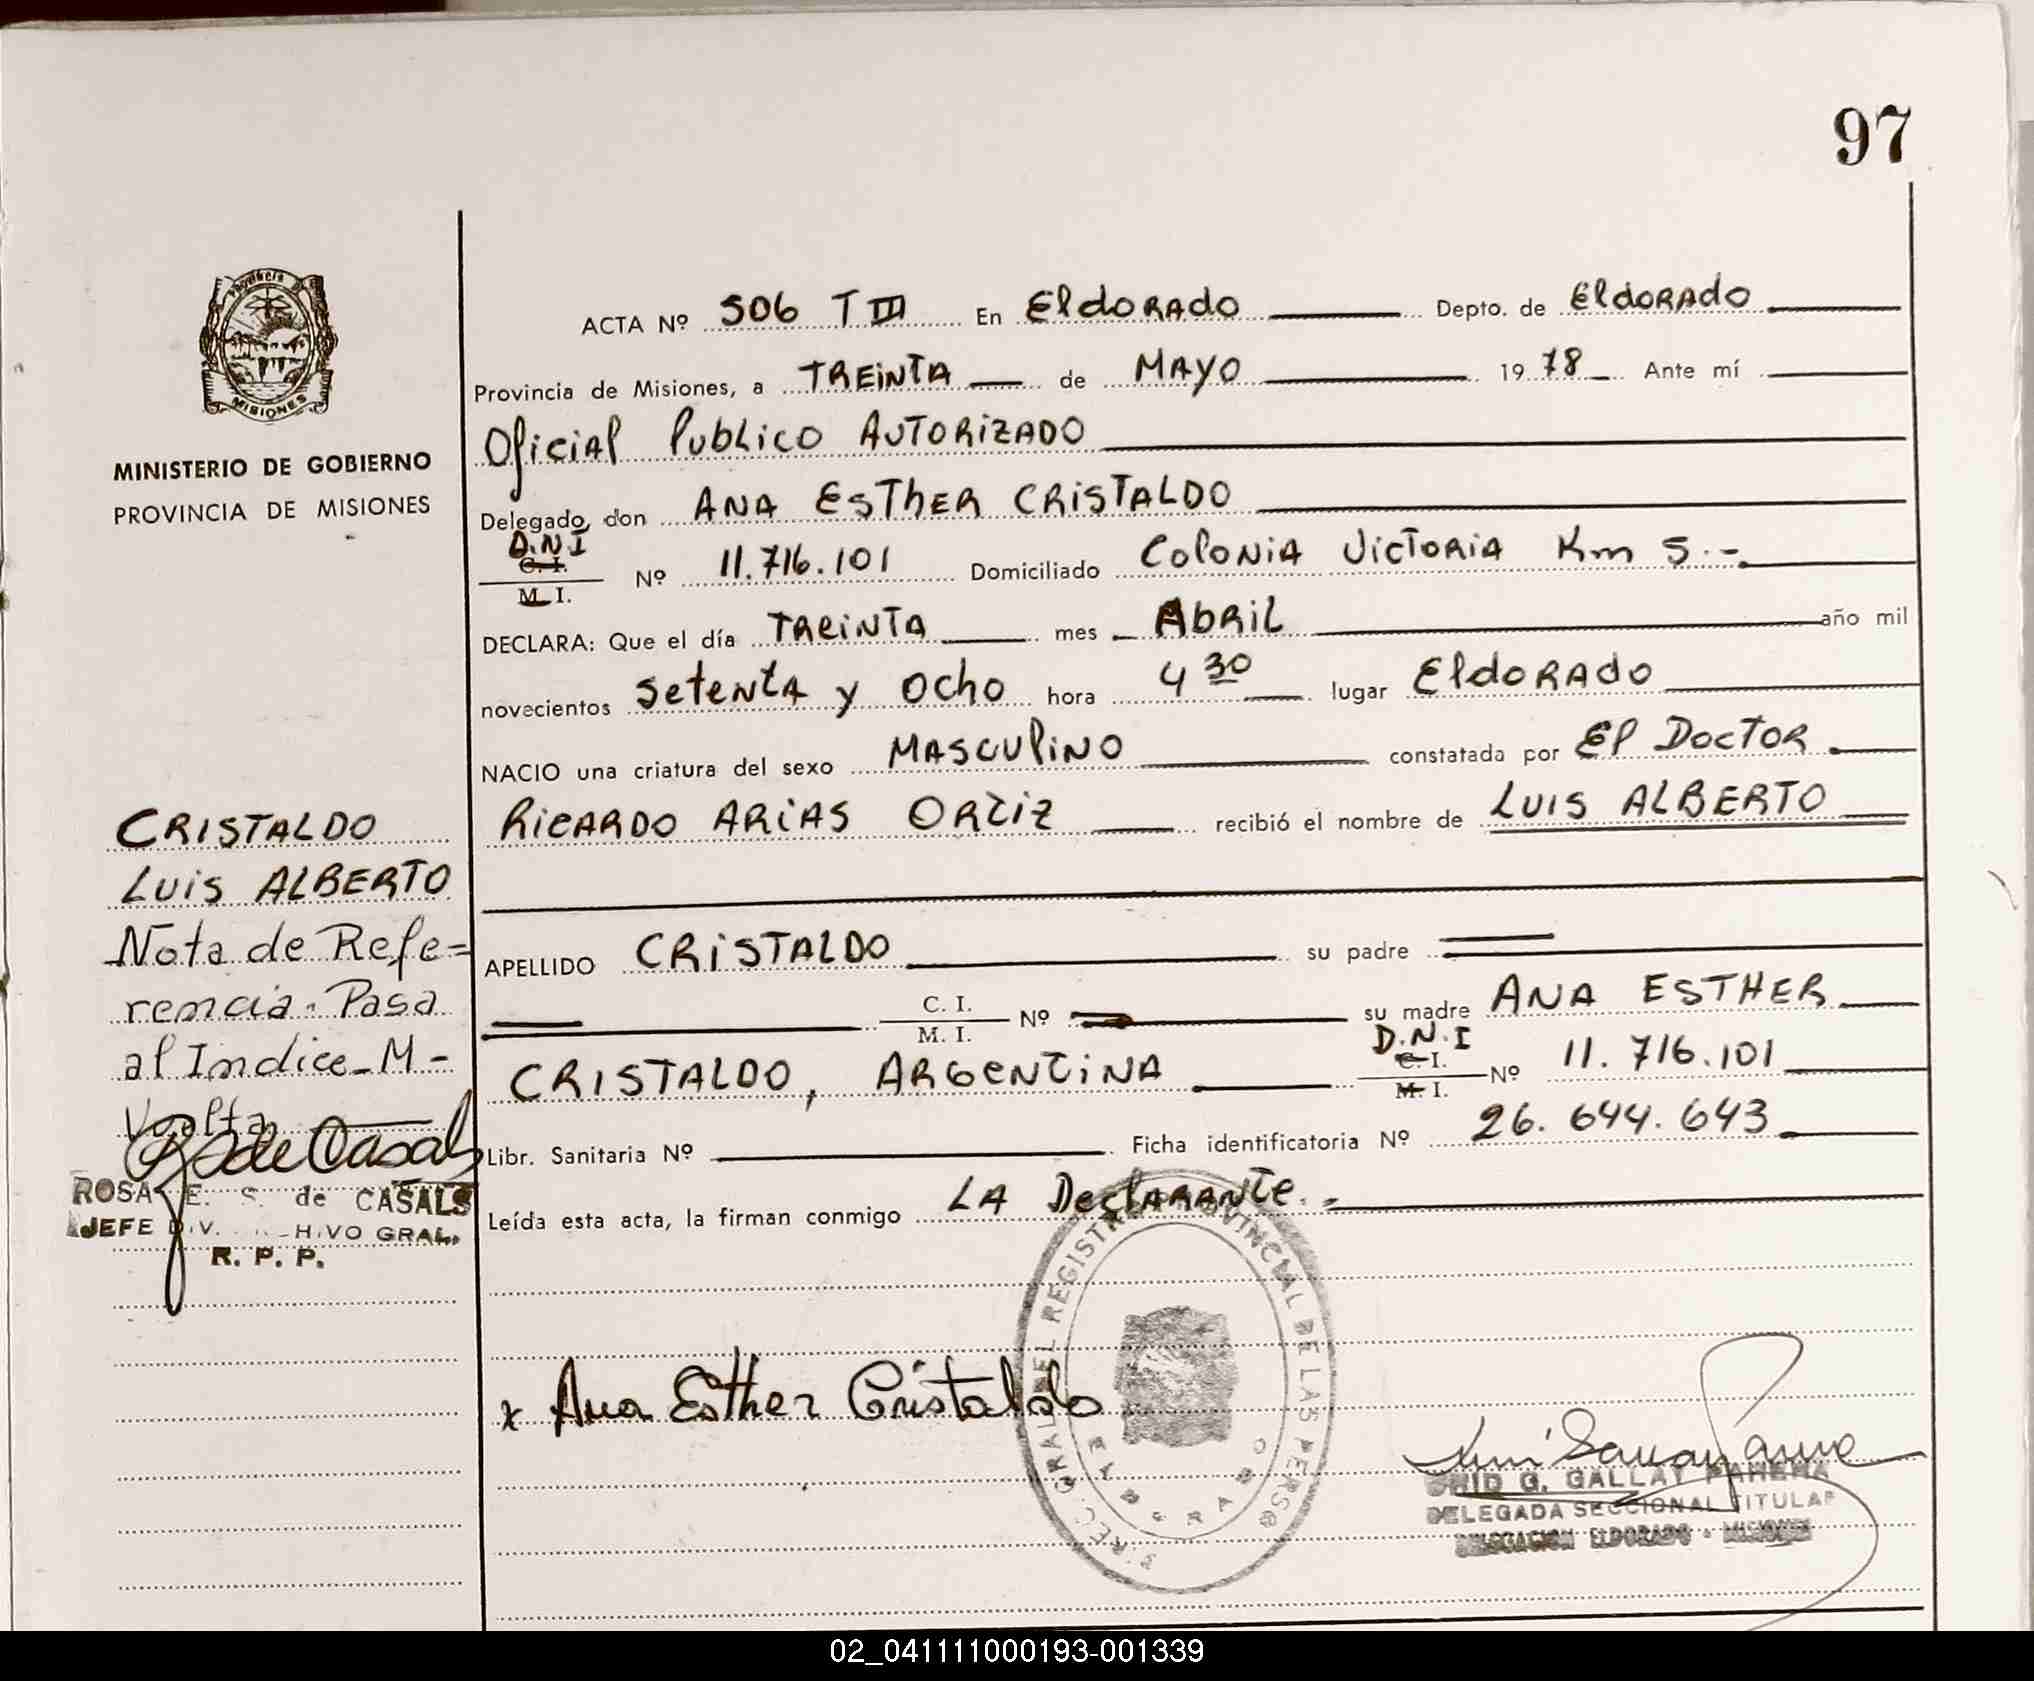 97
ACTA Nº 506 T III En Eldorado Depto. de Eldorado
Provincia de Misiones, a TREINTA de MAYO 1978 Ante mí
Oficial Publico AUTORIZADO
Delegado, don ANA ESTHER CRISTALDO
D.N.I C. I. M. I. Nº 11.716.101 Domiciliado Colonia Victoria Km 5.-
DECLARA: Que el día TREINTA mes Abril año mil
novecientos setenta y ocho hora 4 30 lugar Eldorado
NACIO una criatura del sexo MASCULINO constatada por El Doctor
RICARDO ARIAS ORTIZ recibió el nombre de LUIS ALBERTO
APELLIDO CRISTALDO su padre
C. I. M. I. Nº su madre ANA ESTHER
CRISTALDO, ARGENTINA D.N.I C. I. M. I. Nº 11.716.101
Libr. Sanitaria Nº Ficha identificatoria Nº 26.644.643
Leída esta acta, la firman conmigo LA Declarante.-
x Ana Esther Cristaldo
G. GALLAY
DELEGADA SECCIONAL TITULAR
DELEGACION ELDORADO - MISIONES
MISIONES
MINISTERIO DE GOBIERNO
PROVINCIA DE MISIONES
CRISTALDO
LUIS ALBERTO
Nota de Refe=
rencia. Pasa
al Indice M-
Vuelta
R S de Casals
ROSA E. S. de CASALS
JEFE DIV. HIVO GRAL.
R. P. P.
REGISTRO PROVINCIAL DE LAS PERS
02_041111000193-001339